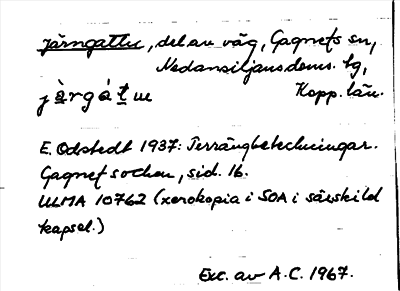 Järngattu, del av väg, Gagnefs sn,
Nedansiljans doms. tg,
Kopp. län.
E. Odstedt 1937: Terrängbeteckningar.
Gagnef socken, sid. 16.
ULMA 10762 (xerokopia i SOA i särskild
kapsel.)
Exc. av A.C. 1967.